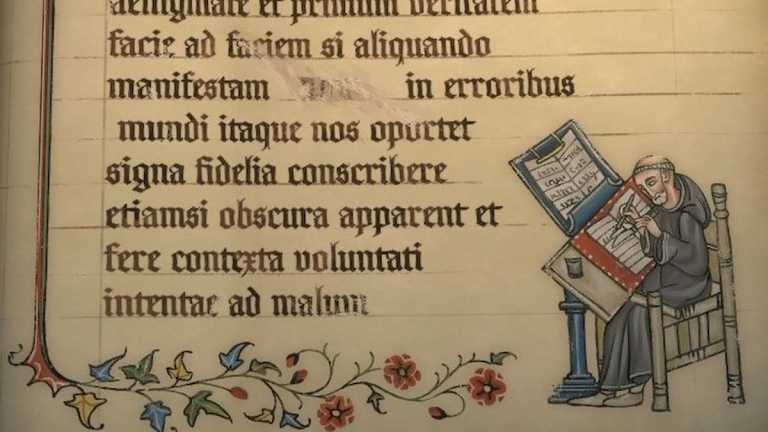 aenigmate et primum veritatem
facie ad faciem si aliquando
manifestam in erroribus
mundi itaque nos oportet
signa fidelia conscribere
etiamsi obscura apparent et
fere contexta voluntati
intentae ad malum